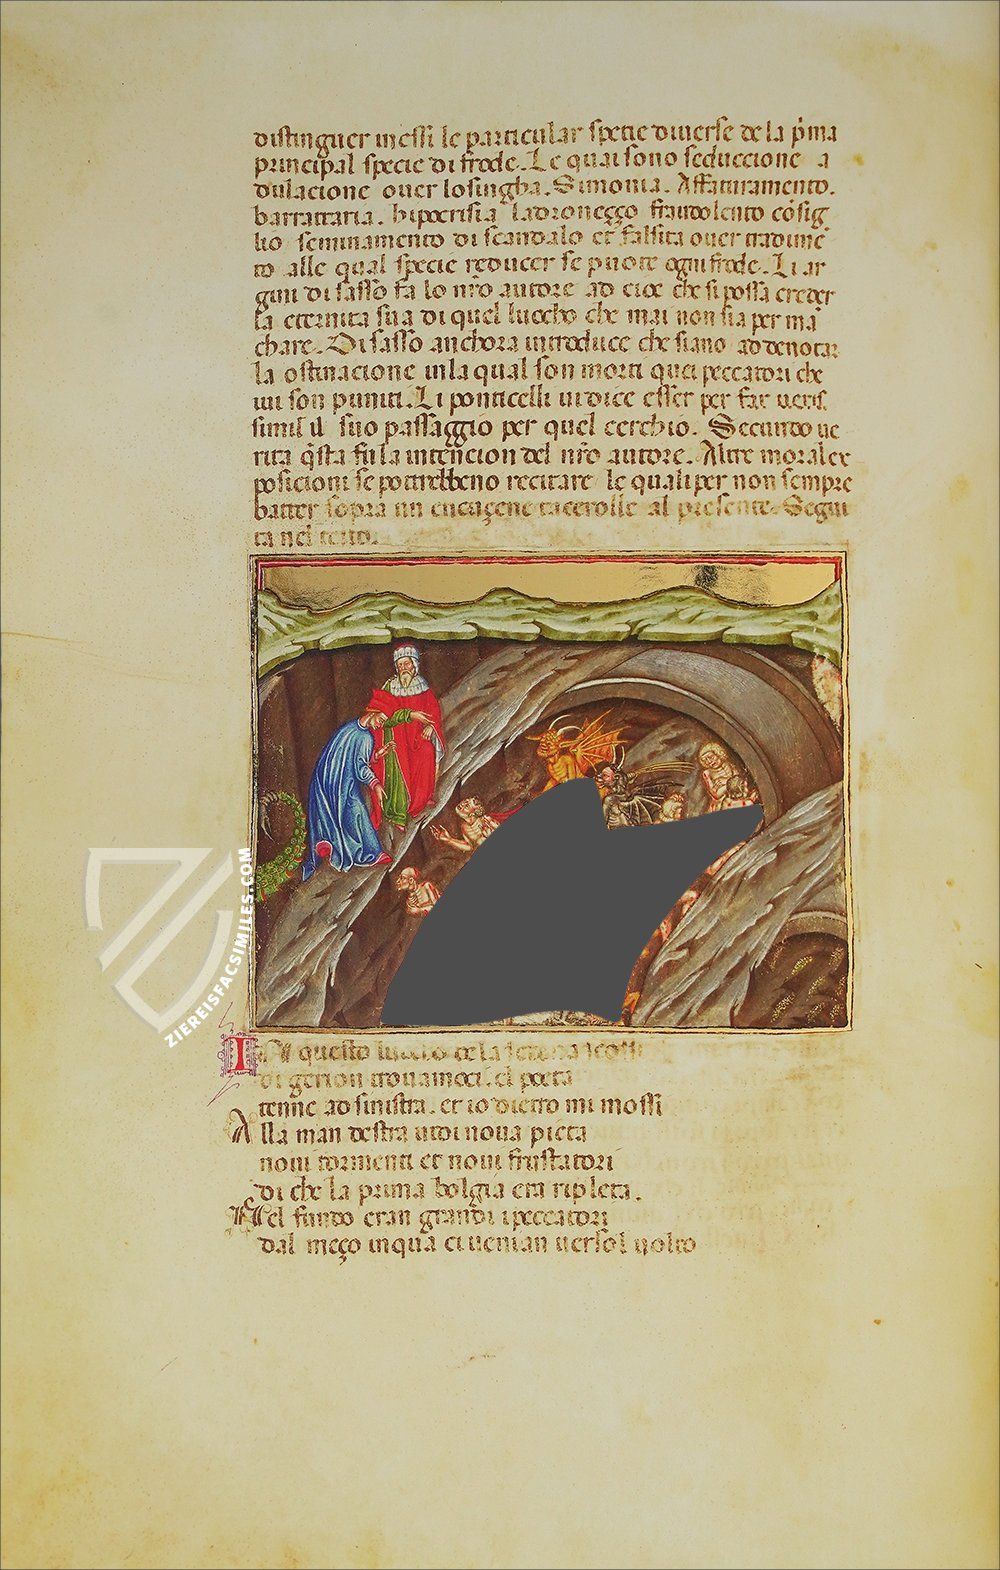 distinguer in essi le particular specie diverse de la p̃ma
principal specie di frode. Le quai sono seduccione a
dulacione over losingha. Simonia. Affaturamento.
barrattaria. hipocrisia ladroneçço fraudolento cõsig
lio seminamento di scandalo et falsita over tradime
to alle qual specie reducer se puote ogni frode. Li ar
gini di sasso fa lo nr̃o autore ad cioe che si possa creder
la eternita sua di quel luocho che mai non sia per mã
chare. Di sasso anchora introduce che siano ad denotar
la ostinacione in la qual son morti quei peccatori che
ivi son puniti. Li ponticelli vi dice esser per far veris
simil il suo passaggio per quel cerchio. Secundo ve
rita q̃sta fu la intencion del nr̃o autore. Altre moral ex
posicioni se potrebbeno recitare le quali per non sempre
batter sopra un al presente. Segui
ta nel testo.
ZIEREISFACSIMILES.COM
I N questo luocho de la schena scossi
di gerion trovamoci. el poeta
tenne ad sinistra. et io dietro mi mossi
Alla man destra vidi nova pieta
novi tormenti et novi frustatori
di che la prima bolgia era ripleta.
Nel fundo eran grandi i peccatori
dal meço in qua ci venian verso'l volto